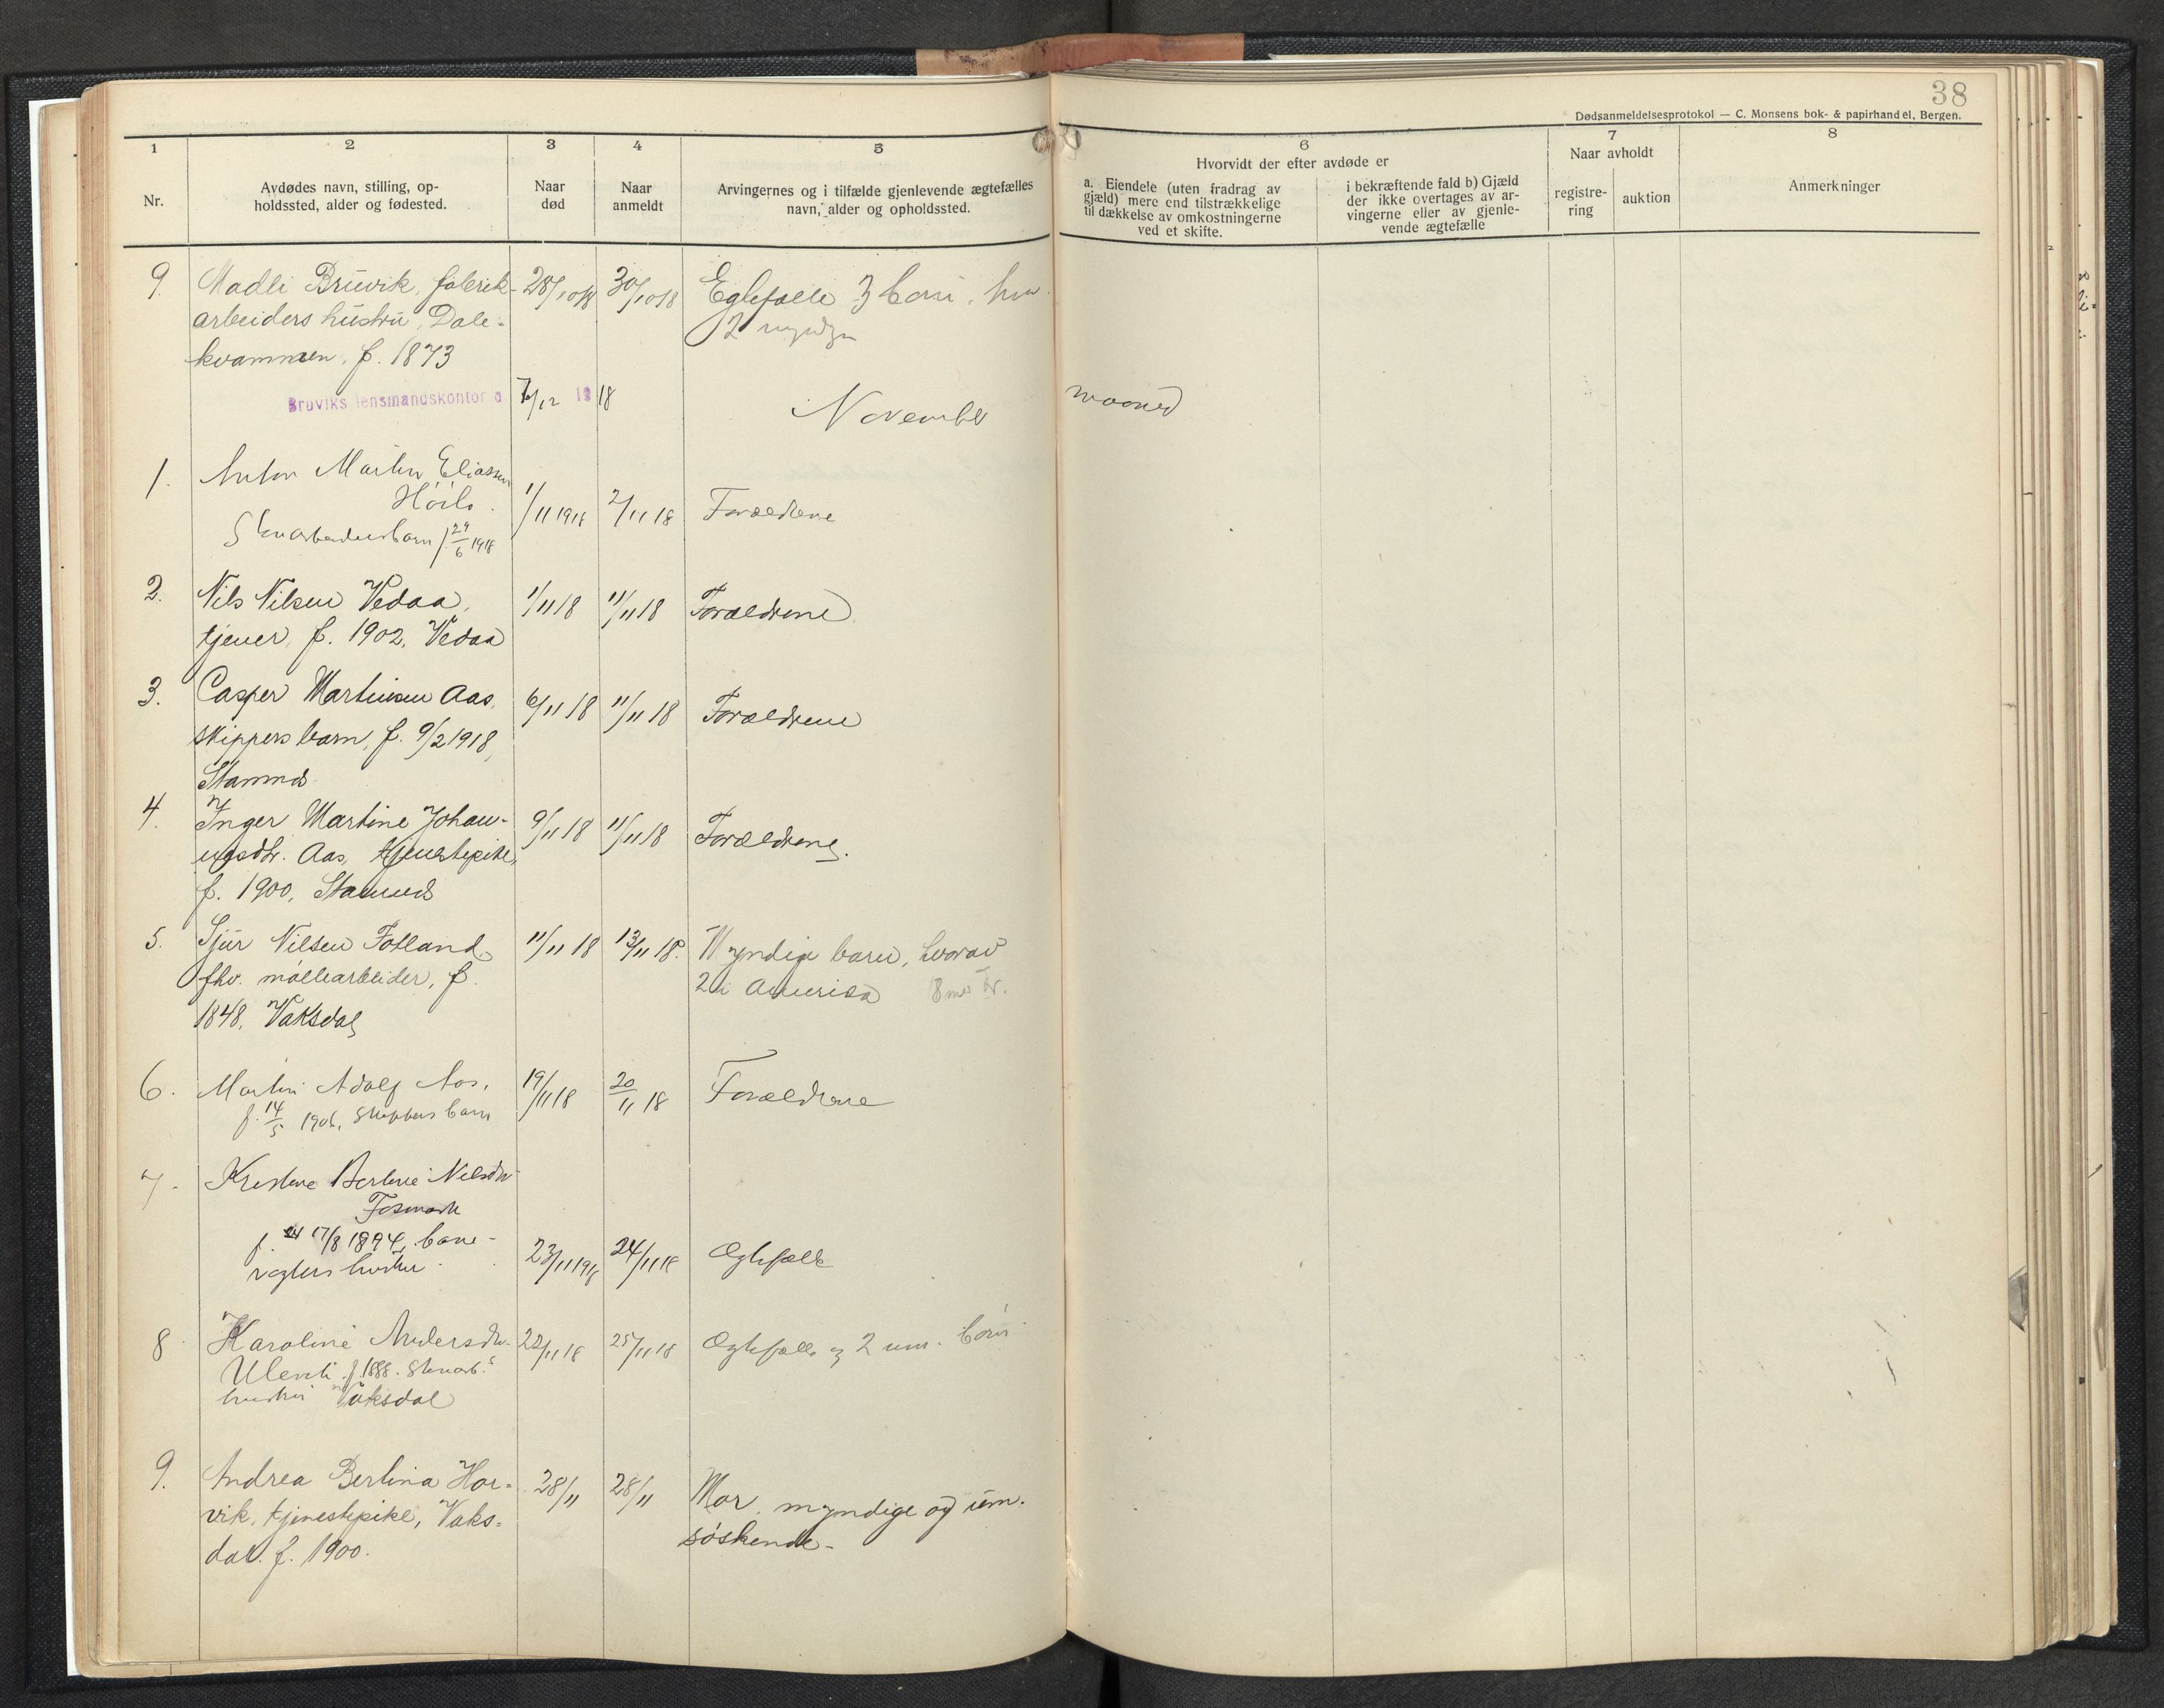 38
Dødsanmeldelsesprotokol — C. Monsens bok- & papirhandel, Bergen.
1
2
3
4
5
6
7
8
Nr.
Avdødes navn, stilling, op-
holdssted, alder og fødested.
Naar
død
Naar
anmeldt
Arvingernes og i tilfælde gjenlevende ægtefælles
navn, alder og opholdssted.
Hvorvidt der efter avdøde er
a. Eiendele (uten fradrag av
gjæld) mere end tilstrækkelige
til dækkelse av omkostningerne
ved et skifte.
i bekræftende fald b) Gjæld
der ikke overtages av ar-
vingerne eller av gjenle-
vende ægtefælle
Naar avholdt
registre-
ring
auktion
Anmerkninger
9. Madli Bruvik, fabrik- 28/10 18 30/10 18 Egtefælle 3 barn, hvor
arbeiders hustru, Dale- 2 myndige
kvammen, f. 1873
Bruviks lensmandskontor d 7/12 1918
November maaned
1. Anton Martin Eliassen
1/11 1918 2/11 18 Forældrene
barn f. 29/6 1918
2. Nils Nilsen Vedaa, 1/11 18 11/11 18 Forældrene
tjener, f. 1902, Vedaa
3. Casper Martinsen Aas, 6/11 18 11/11 18 Forældrene
skippers barn, f. 9/2 1918,
Stamnes
4. Inger Martine Johan- 9/11 18 11/11 18 Forældrene.
nesdtr. Aas, tjenestepike,
f. 1900, Stamnes
5. Sjur Nilsen Fotland 11/11 18 13/11 18. Myndige barn, hvorav
fhv. møllearbeider, f. 2 i Amerika
1848, Vaksdal
6. Martin Adolf Aas, 19/11 18 20/11 18 Forældrene
f. 14/5 1906, skippers barn
7. Kristine Bertine Nilsdtr
Fosmark
f. 17/8 1894, bane-
vogters hustru 23/11 1918 24/11 18 Ægtefælle
8 Karoline Andersdtr. 22/11 18 25/11 18 Ægtefælle og 2 um. børn
f. 1888.
hustru Vaksdal
9. Andrea Bertina Hor- 28/11 28/11 Mor, myndige og um.
vik, tjenestepike, Vaks- søskende-
dal. f. 1900.